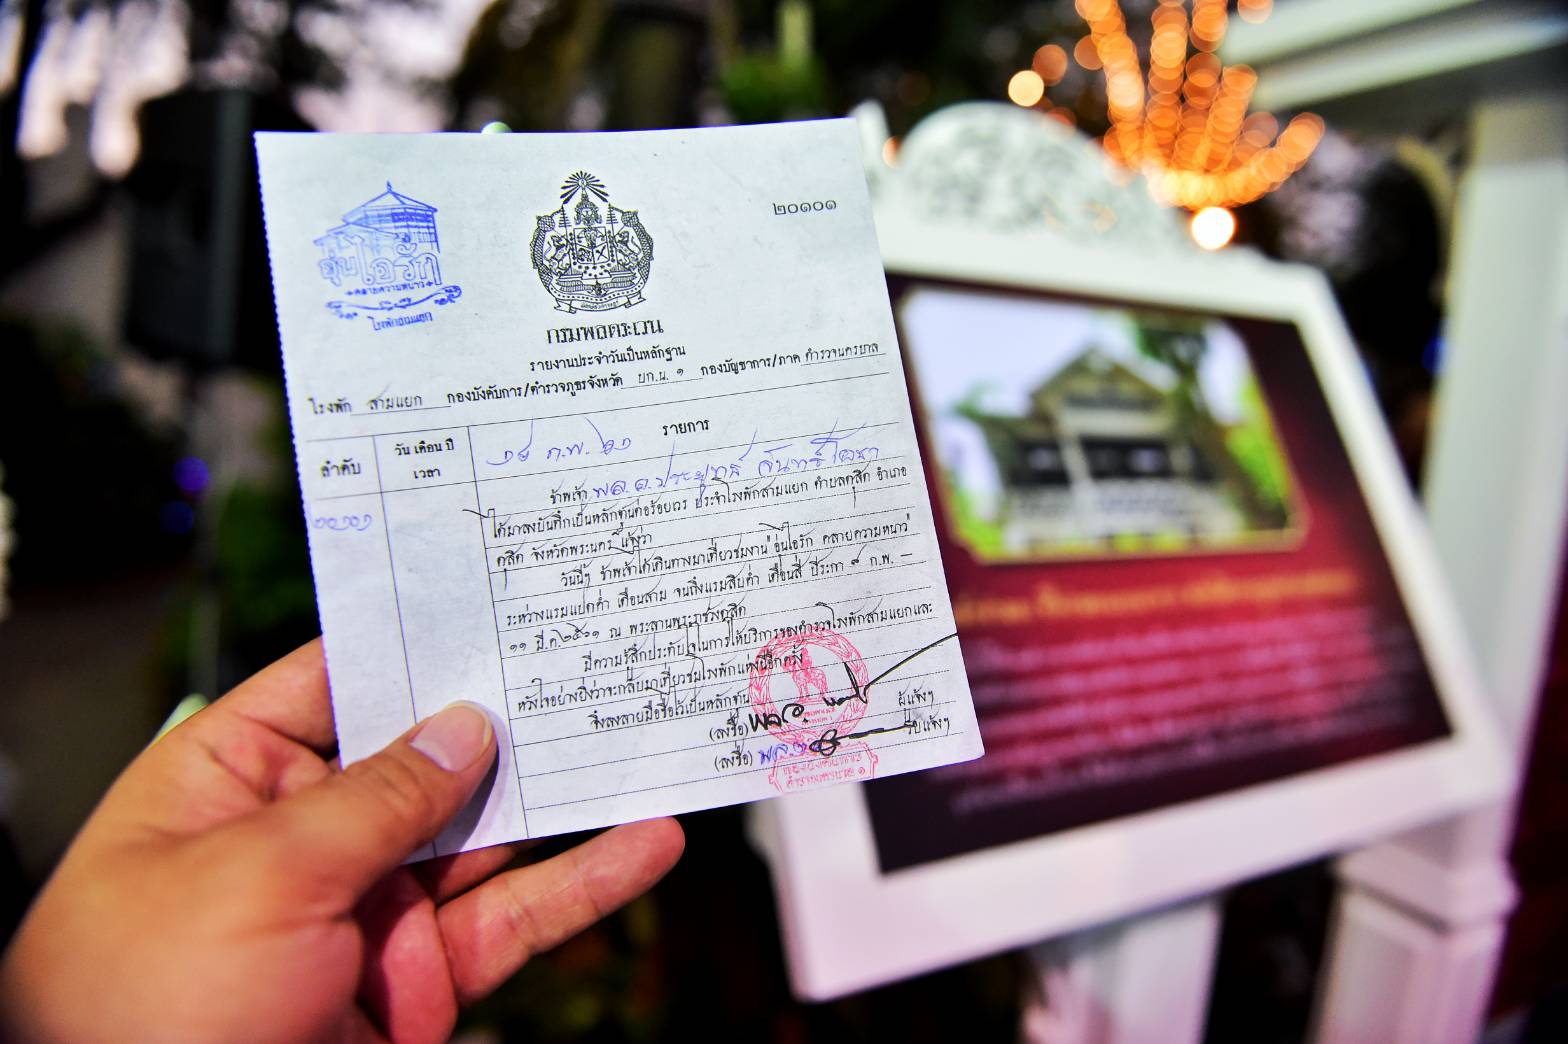 อุ่นไอรัก
คลายความหนาว
โรงพักสามแยก
๒๐๑๐๑
กรมพลตระเวน
รายงานประจำวันเป็นหลักฐาน
โรงพัก สามแยก กองบังคับการ/ตำรวจภูธรจังหวัด บก.น. ๑ กองบัญชาการ/ภาค ตำรวจนครบาล
ลำดับ
วัน เดือน ปี
เวลา
รายการ
๑๘ ก.พ. ๖๑
ข้าพเจ้า พล.อ.ประยุทธ์ จันทร์โอชา
ได้มาลงบันทึกเป็นหลักฐานต่อร้อยเวร ประจำโรงพักสามแยก ตำบลดุสิต อำเภอ
ดุสิต จังหวัดพระนคร
วันนี้ๆ ข้าพเจ้าได้เดินทางมาเที่ยวชมงาน"อุ่นไอรัก คลายความหนาว"
ระหว่างแรมแปดค่ำ เดือนสาม จนถึงแรมสิบค่ำ เดือนสี่ ปีระกา ๘ ก.พ. –
๑๑ มี.ค.๒๕๖๑ ณ พระลานพระราชวังดุสิต
มีความรู้สึกประทับใจในการให้บริการของตำรวจโรงพักสามแยกและ
หวังใจอย่างยิ่งว่าจะกลับมาเที่ยวชมโรงพักแห่งนี้อีกครั้ง
จึงลงลายมือชื่อไว้เป็นหลักฐาน
(ลงชื่อ) พล.อ. ผู้แจ้งฯ
(ลงชื่อ) รับแจ้งฯ